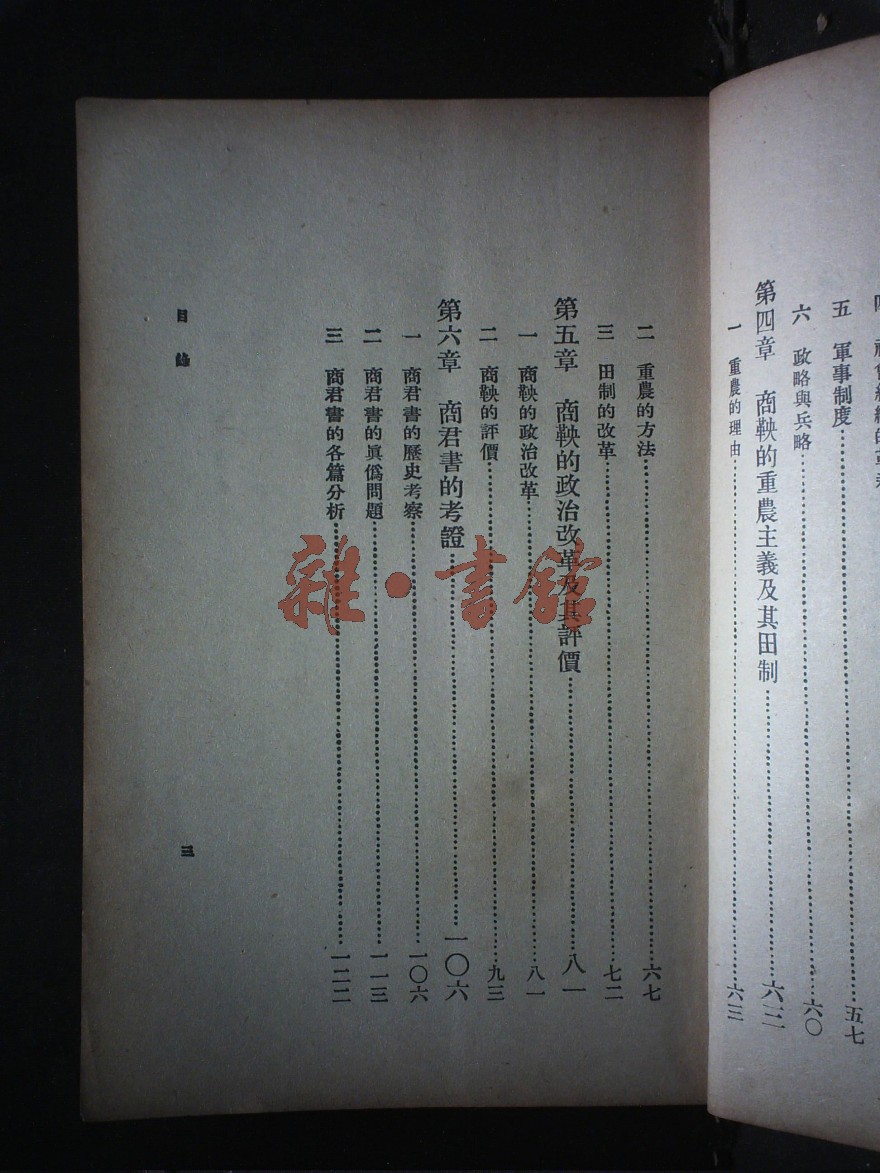 五　軍事制度　五七
六　政略與兵略　六〇
第四章　商鞅的重農主義及其田制　六三
一　重農的理由　六三
二　重農的方法　六七
三　田制的改革　七二
第五章　商鞅的政治改革及其評價　八一
一　商鞅的政治改革　八一
二　商鞅的評價　九三
第六章　商君書的考證　一〇六
一　商君書的歷史考察　一〇六
二　商君書的眞僞問題　一一三
三　商君書的各篇分析　一二二
目錄
三
雜·書館